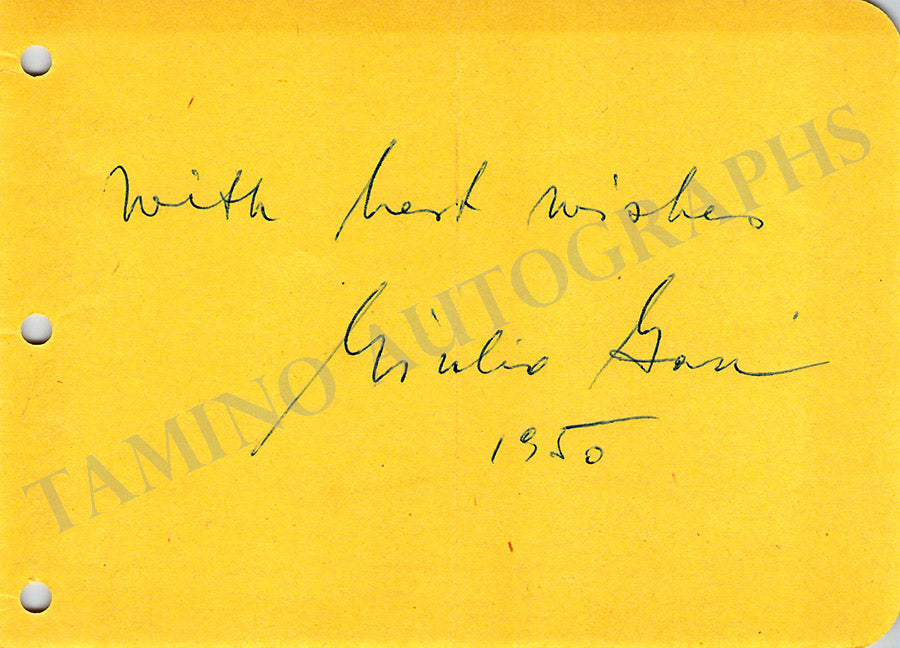 With best wishes
Giulio Gari
1950
TAMINO AUTOGRAPHS